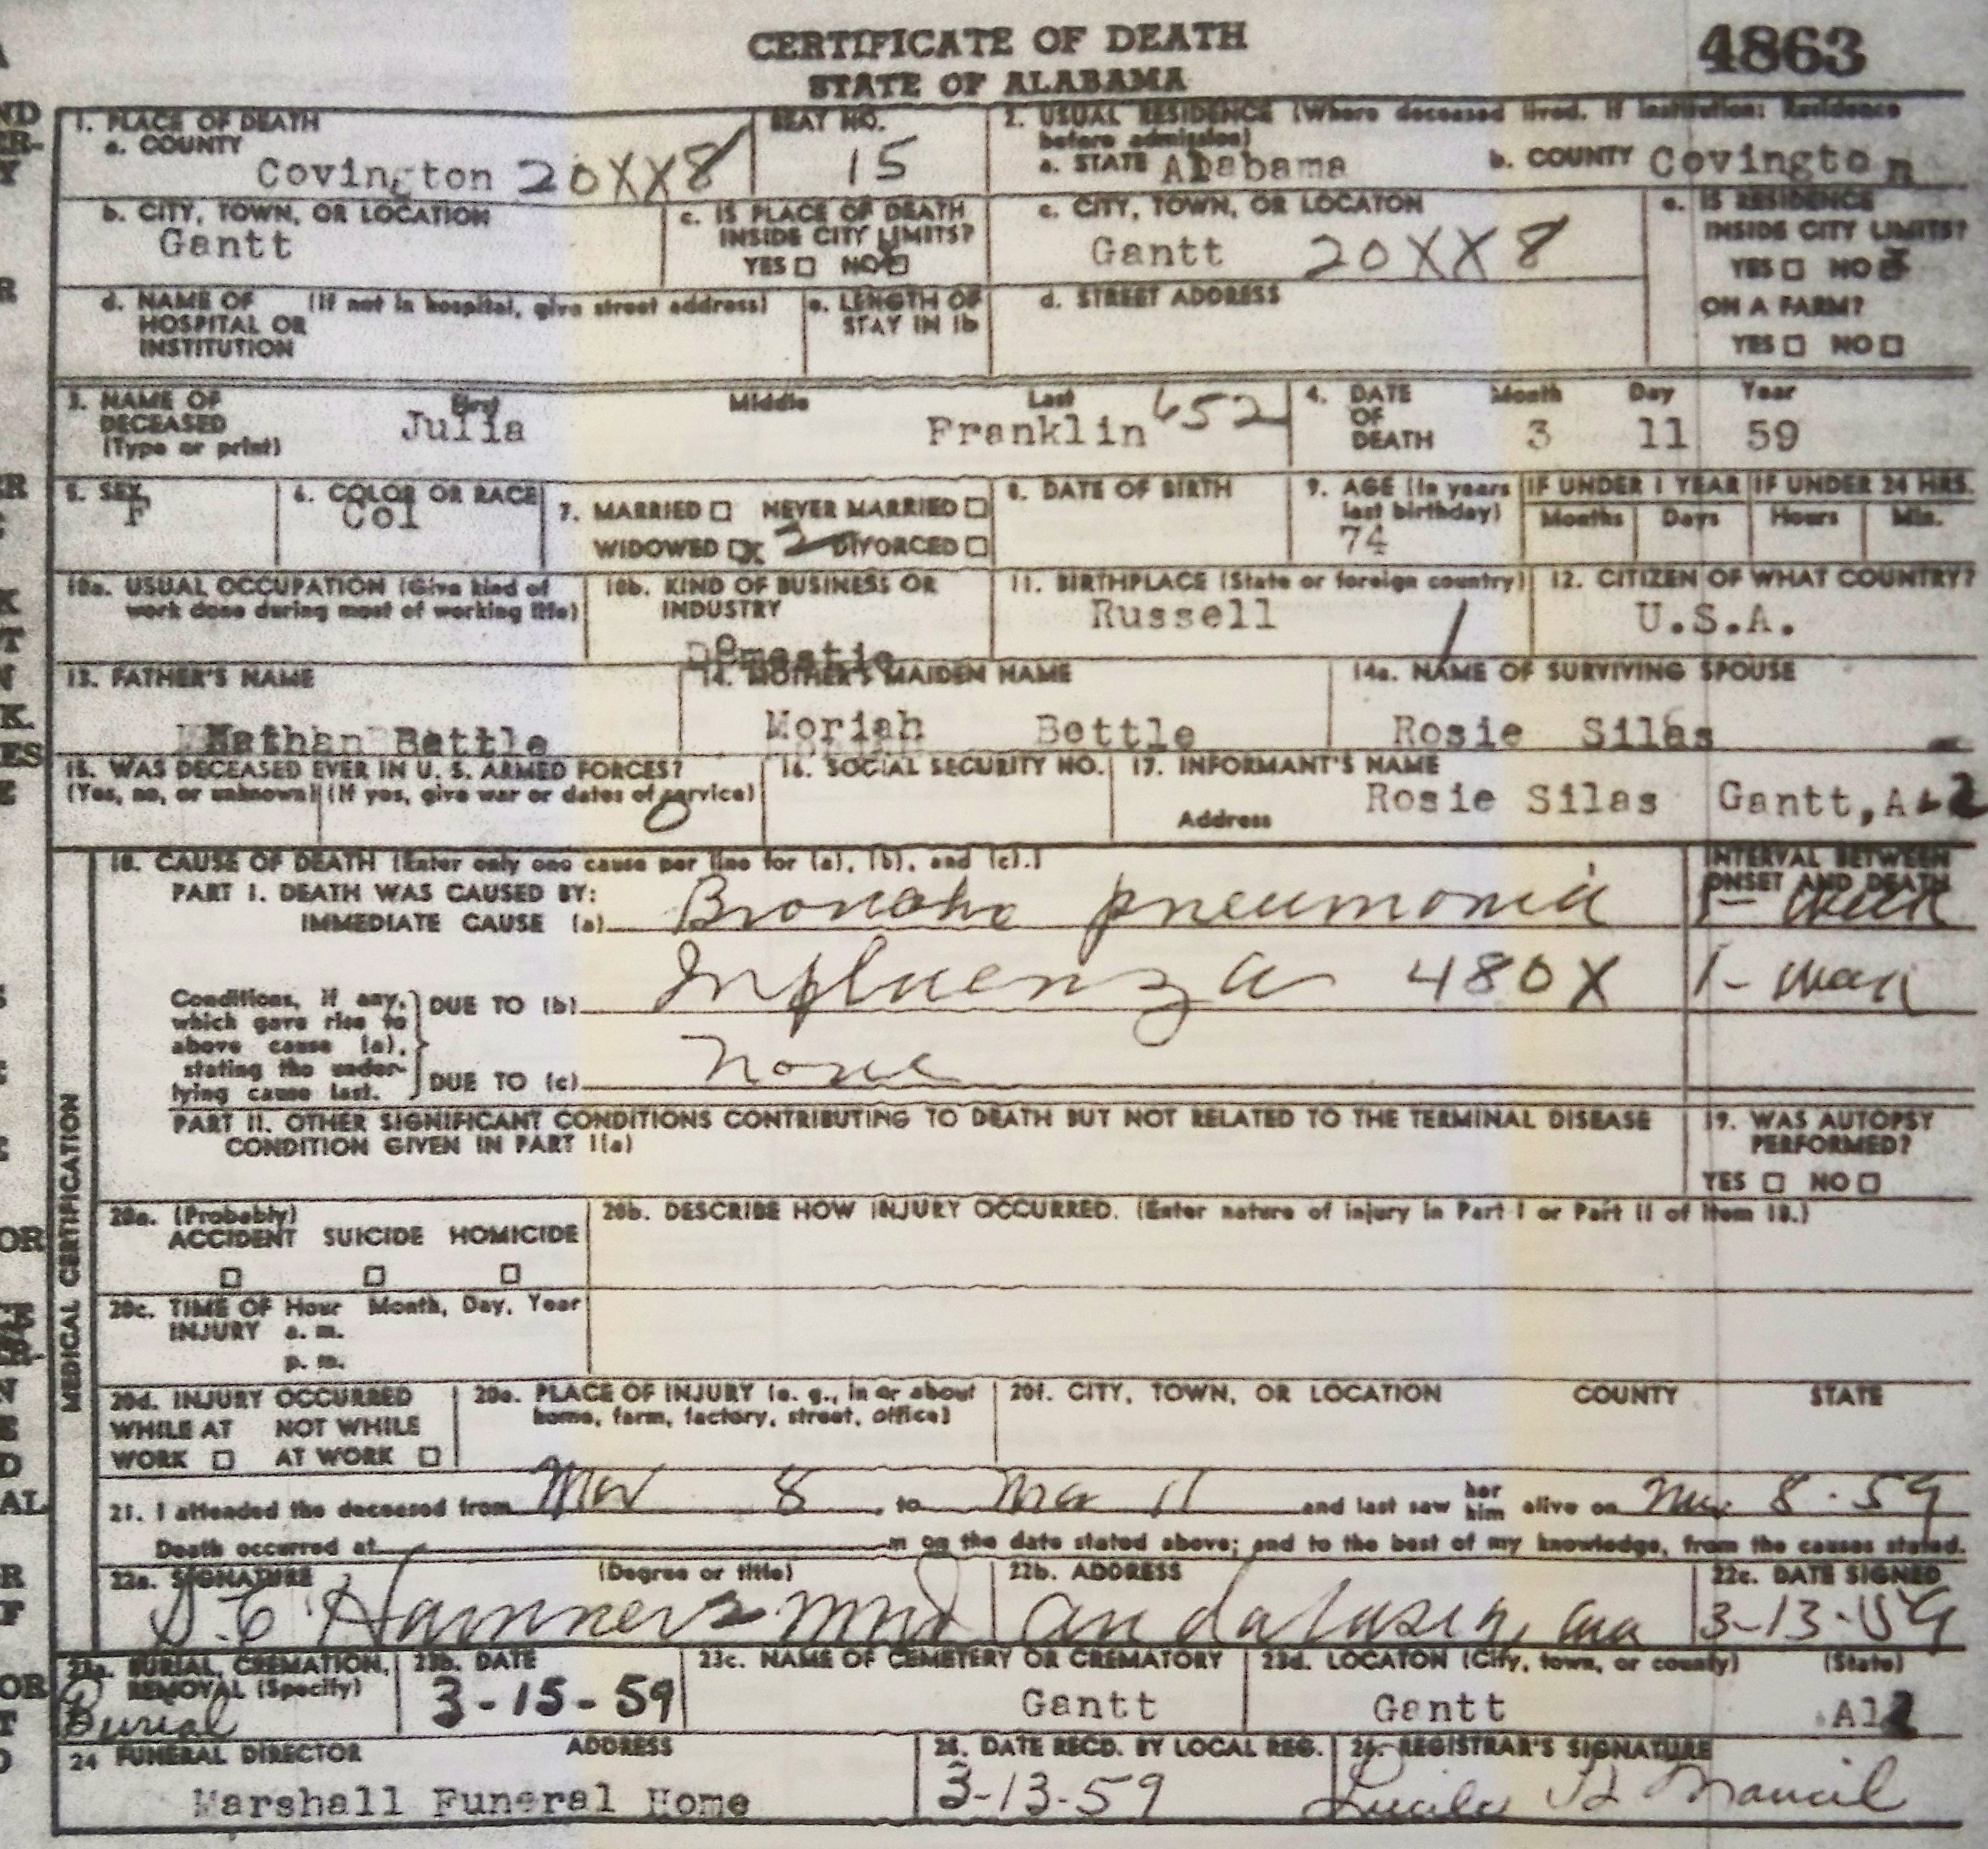 CERTIFICATE OF DEATH
STATE OF ALABAMA
4863
1. PLACE OF DEATH
a. COUNTY
Covington 20XX8
BEAT NO.
15
2. USUAL RESIDENCE (Where deceased lived. If institution: Residence before admission)
a. STATE Alabama
b. COUNTY Covington
b. CITY, TOWN, OR LOCATION
Gantt
c. IS PLACE OF DEATH
INSIDE CITY LIMITS?
YES □ NO
c. CITY, TOWN, OR LOCATON
Gantt 20XX8
e. IS RESIDENCE
INSIDE CITY LIMITS?
YES □ NO
ON A FARM?
YES □ NO □
d. NAME OF (If not in hospital, give street address)
HOSPITAL OR
INSTITUTION
e. LENGTH OF
STAY IN 1b
d. STREET ADDRESS
3. NAME OF
DECEASED
(Type or print)
First
Julia
Middle
Last
Franklin 652
4. DATE
OF
DEATH
Month Day Year
3 11 59
5. SEX
F
6. COLOR OR RACE
Col
7. MARRIED □ NEVER MARRIED □
WIDOWED x 2 DIVORCED □
8. DATE OF BIRTH
9. AGE (In years
last birthday)
74
IF UNDER 1 YEAR
Months Days
IF UNDER 24 HRS.
Hours Min.
10a. USUAL OCCUPATION (Give kind of
work done during most of working life)
10b. KIND OF BUSINESS OR
INDUSTRY
Domestic
11. BIRTHPLACE (State or foreign country)
Russell 1
12. CITIZEN OF WHAT COUNTRY?
U.S.A.
13. FATHER'S NAME
Nathan Battle
14. MOTHER'S MAIDEN NAME
Moriah Bettle
14a. NAME OF SURVIVING SPOUSE
Rosie Silas
15. WAS DECEASED EVER IN U. S. ARMED FORCES?
(Yes, no, or unknown) (If yes, give war or dates of service)
0
16. SOCIAL SECURITY NO.
17. INFORMANT'S NAME
Rosie Silas Gantt,
Address
MEDICAL CERTIFICATION
18. CAUSE OF DEATH (Enter only one cause per line for (a), (b), and (c).)
INTERVAL BETWEEN
ONSET AND DEATH
PART I. DEATH WAS CAUSED BY:
IMMEDIATE CAUSE (a) Broncho pneumonia 1- week
Conditions, if any,
which gave rise to
above cause (a),
stating the under-
lying cause last.
DUE TO (b) Influenza 480X 1- week
DUE TO (c) None
PART II. OTHER SIGNIFICANT CONDITIONS CONTRIBUTING TO DEATH BUT NOT RELATED TO THE TERMINAL DISEASE
CONDITION GIVEN IN PART I(a)
19. WAS AUTOPSY
PERFORMED?
YES □ NO □
20a. (Probably)
ACCIDENT SUICIDE HOMICIDE
□ □ □
20b. DESCRIBE HOW INJURY OCCURRED. (Enter nature of injury in Part I or Part II of Item 18.)
20c. TIME OF Hour Month, Day, Year
INJURY a. m.
p. m.
20d. INJURY OCCURRED
WHILE AT NOT WHILE
WORK □ AT WORK □
20e. PLACE OF INJURY (e. g., in or about
home, farm, factory, street, office)
20f. CITY, TOWN, OR LOCATION COUNTY STATE
21. I attended the deceased from Mar 8, to Mar 11 and last saw her him alive on Mar 8-59
Death occurred at m on the date stated above; and to the best of my knowledge, from the causes stated.
22a. SIGNATURE (Degree or title)
Hamner MD
22b. ADDRESS
Andalusia, Ala
22c. DATE SIGNED
3-13-59
23a. BURIAL, CREMATION,
REMOVAL (Specify)
Burial
23b. DATE
3-15-59
23c. NAME OF CEMETERY OR CREMATORY
Gantt
23d. LOCATON (City, town, or county) (State)
Gantt Ala
24 FUNERAL DIRECTOR ADDRESS
Marshall Funeral Home
25. DATE RECD. BY LOCAL REG.
3-13-59
26. REGISTRAR'S SIGNATURE
Lucile